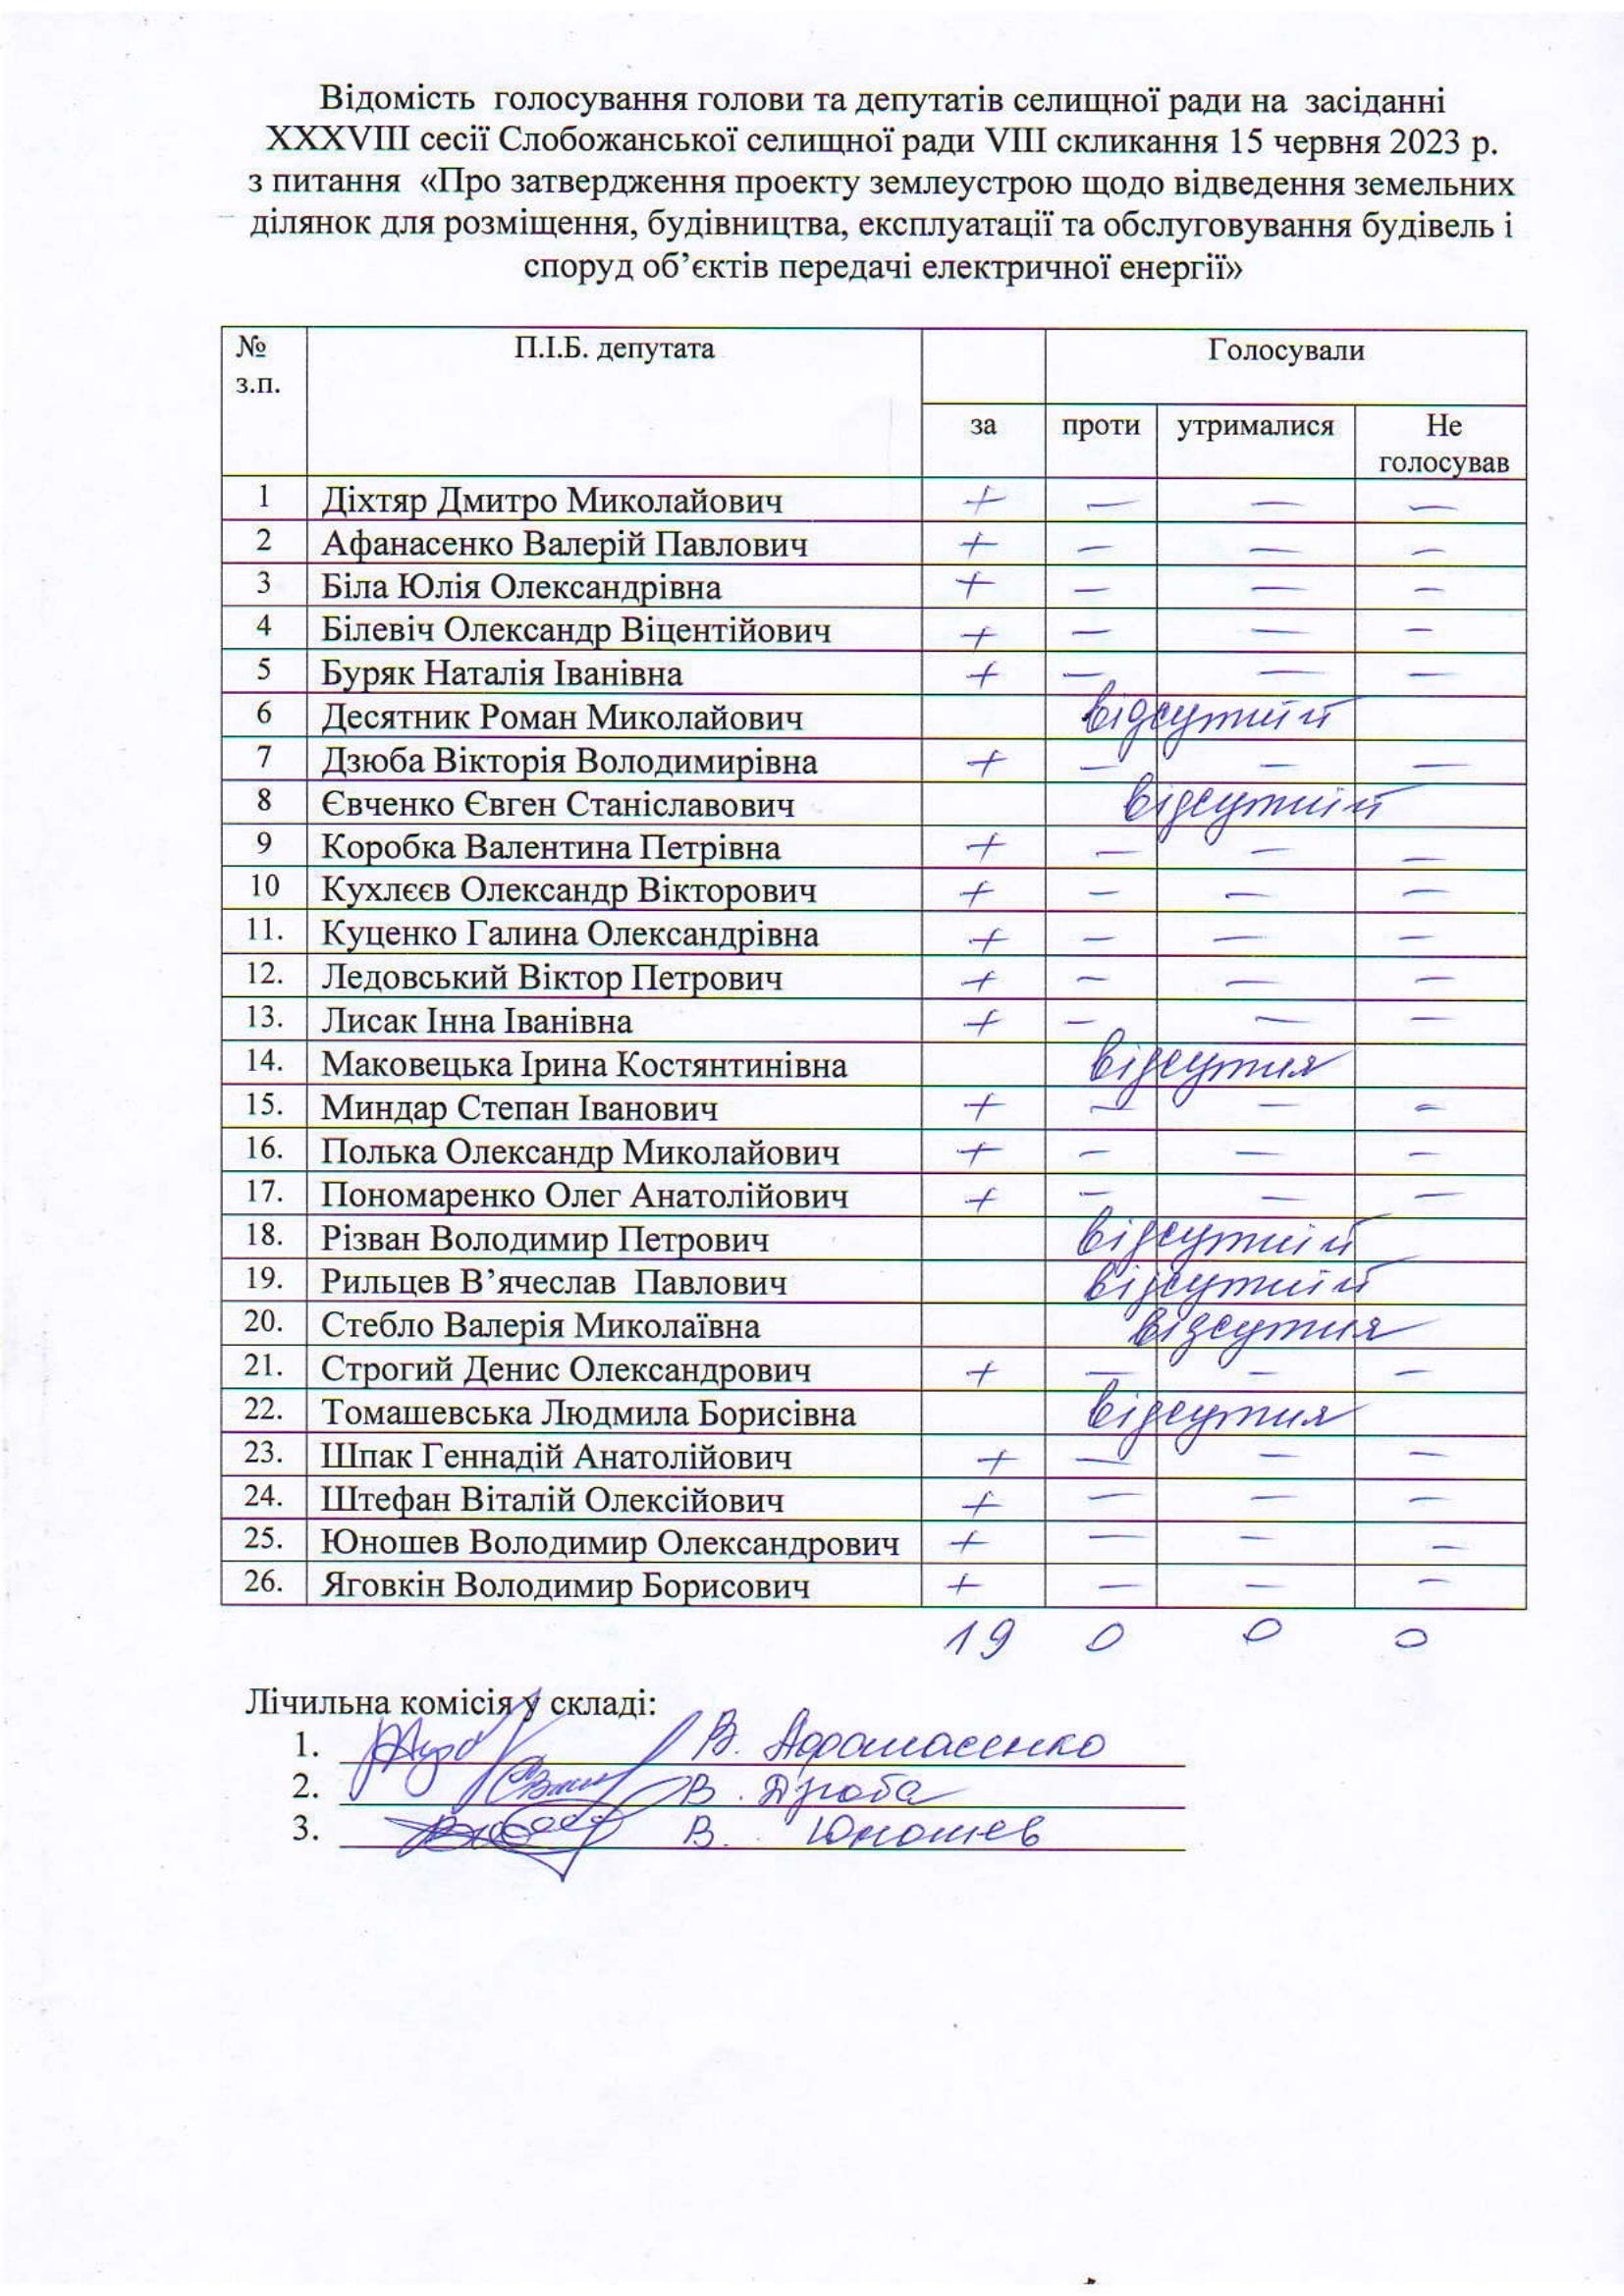 Відомість голосування голови та депутатів селищної ради на засіданні
XXXVIII сесії Слобожанської селищної ради VIII скликання 15 червня 2023 р.
з питання «Про затвердження проекту землеустрою щодо відведення земельних
ділянок для розміщення, будівництва, експлуатації та обслуговування будівель і
споруд об’єктів передачі електричної енергії»
№ з.п. П.І.Б. депутата Голосували
за проти утрималися Не голосував
1 Діхтяр Дмитро Миколайович + — — —
2 Афанасенко Валерій Павлович + — — —
3 Біла Юлія Олександрівна + — — —
4 Білевіч Олександр Віцентійович + — — —
5 Буряк Наталія Іванівна + — — —
6 Десятник Роман Миколайович відсутній
7 Дзюба Вікторія Володимирівна + — — —
8 Євченко Євген Станіславович відсутній
9 Коробка Валентина Петрівна + — — —
10 Кухлєєв Олександр Вікторович + — — —
11. Куценко Галина Олександрівна + — — —
12. Ледовський Віктор Петрович + — — —
13. Лисак Інна Іванівна + — — —
14. Маковецька Ірина Костянтинівна відсутня
15. Миндар Степан Іванович + — — —
16. Полька Олександр Миколайович + — — —
17. Пономаренко Олег Анатолійович + — — —
18. Різван Володимир Петрович відсутній
19. Рильцев В’ячеслав Павлович відсутній
20. Стебло Валерія Миколаївна відсутня
21. Строгий Денис Олександрович + — — —
22. Томашевська Людмила Борисівна відсутня
23. Шпак Геннадій Анатолійович + — — —
24. Штефан Віталій Олексійович + — — —
25. Юношев Володимир Олександрович + — — —
26. Яговкін Володимир Борисович + — — —
19 0 0 0
Лічильна комісія у складі:
1. В. Афанасенко
2. В. Дзюба
3. В. Юношев